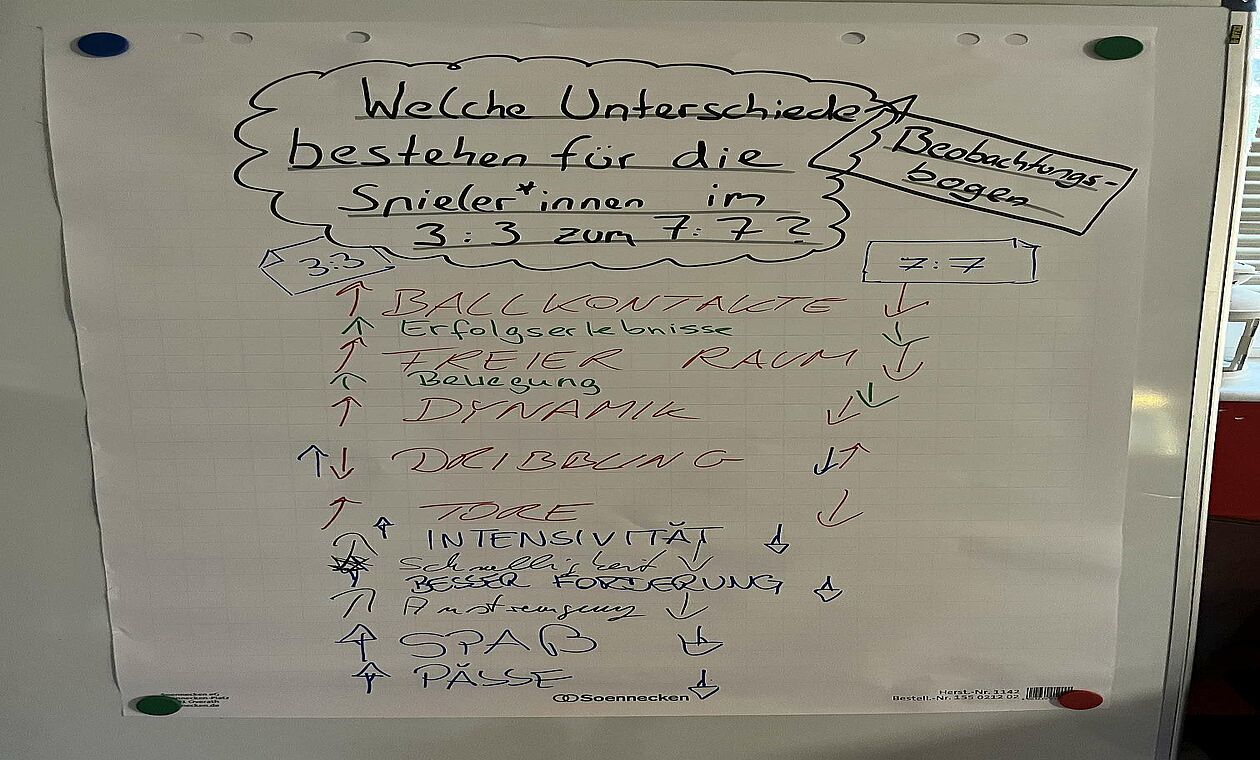 Welche Unterschiede
bestehen für die
Spieler*innen im
3:3 zum 7:7?
Beobachtungs-
bogen
3:3
7:7
↑ BALLKONTAKTE ↓
↑ Erfolgserlebnisse ↓
↑ FREIER RAUM ↓
↑ Bewegung ↓
↑ DYNAMIK ↓
↑↓ DRIBBLING ↓↑
↑ TORE ↓
↑ INTENSIVITÄT ↓
Schnelligkeit ↓
↑ BESSER FORDERUNG ↓
↑ Anstrengung ↓
↑ SPAß ↓
↑ PÄSSE ↓
Soennecken
Herst.-Nr. 1142
Bestell.-Nr. 155 0212 02